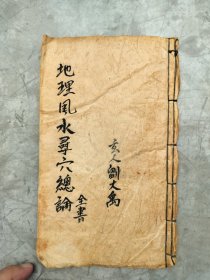 地理風水尋穴總論全書
玄人劉文禹